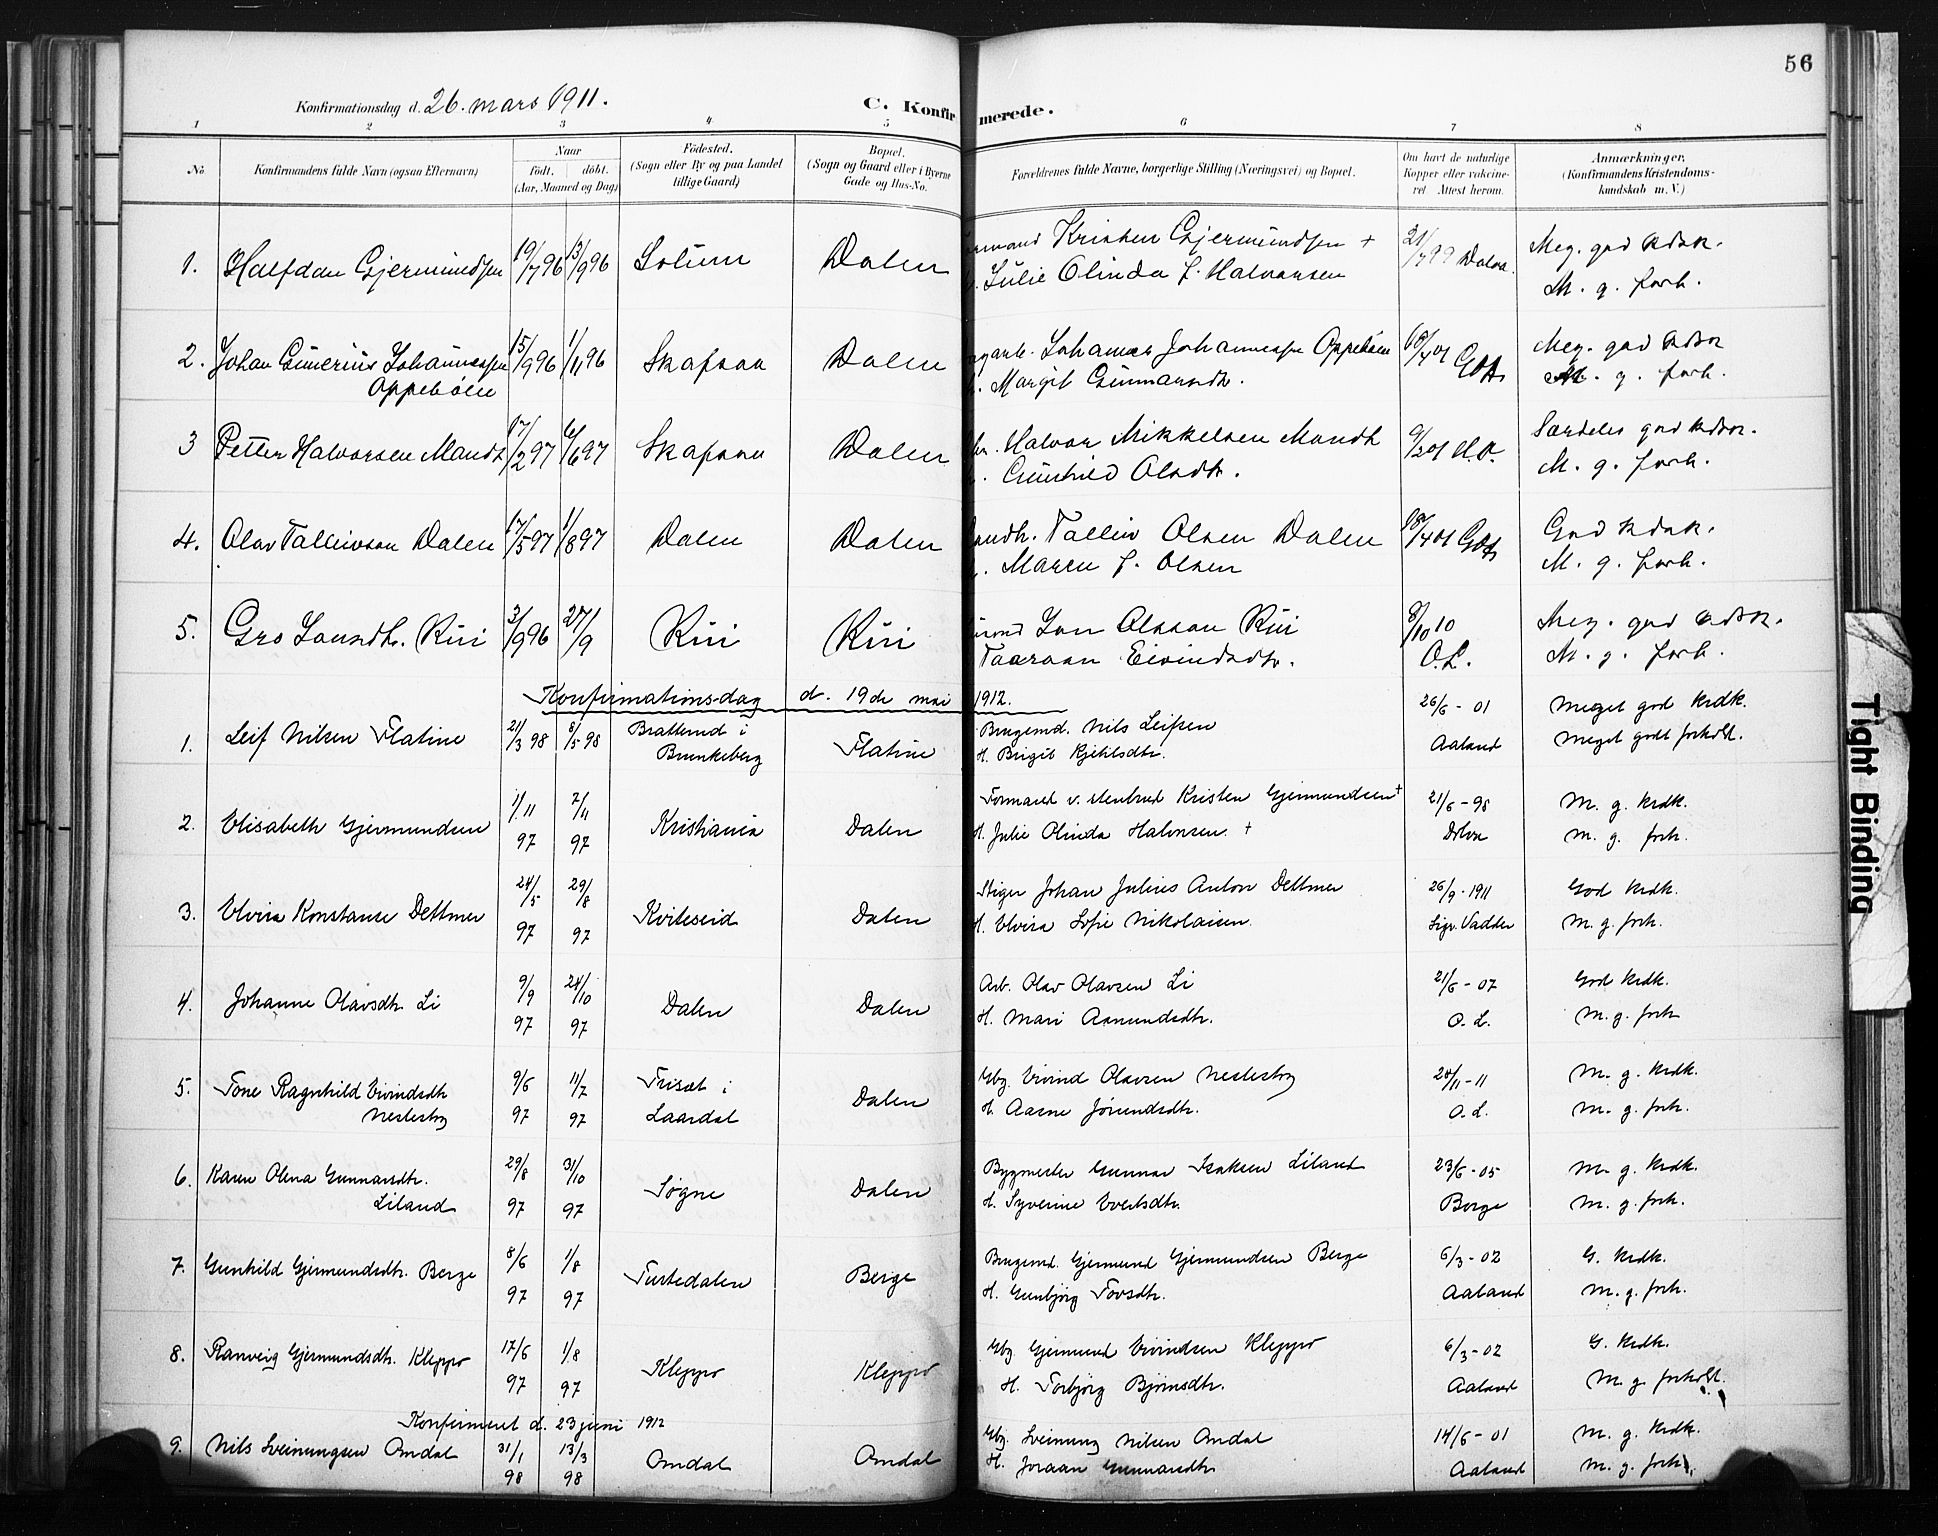 56
Konfirmationsdag d. 26. mars 1911.
C. Konfirmerede.
1 2 3 4 5 6 7 8
No. Konfirmandens fulde Navn (ogsaa Efternavn) Naar født. døbt. (Aar, Maaned og Dag) Fødested. (Sogn eller By og paa Landet tillige Gaard) Bopæl. (Sogn og Gaard eller i Byerne Gade og Hus-No. Forældrenes fulde Navne, borgerlige Stilling (Næringsvei) og Bopæl. Om havt de naturlige Kopper eller vakcineret Attest herom. Anmærkninger. (Konfirmandens Kristendomskundskab m. V.)
1. Halfdan Gjermundsen 19/7 96 13/9 96 Solum Dalen Kristen Gjermundsen + 21/7 99 Meg. god kdsk.
Julie Olinda f. Halvorsen M. g. forh.
2. Johan Gunerius Johannessen 15/9 96 1/11 96 Skafsaa Dalen Johannes Johannessen Oppebøen 18/4 01 Meg. god kdsk
Oppebøen Margit Gunnarsdtr. M. g. forh.
3 Petter Halvorsen Mandt 17/2 97 6/6 97 Skafsaa Dalen Halvor Mikkelsen Mandt 9/2 01 H.O. Særdeles god kdsk.
Gunhild Olsdtr. M. g. forh.
4. Olav Talleivson Dalen 17/5 97 1/8 97 Dalen Dalen Talleiv Olsen Dalen 18/4 01 God kdsk.
Maren f. Olsen M. g. forh.
5. Gro Jonsdtr. Rui 3/9 96 27/9 Rui Rui Jon Olsson Rui 8/10 10 Meg. god kdsk.
Taaraan Eivindsdtr. O.L. M. g. forh.
Konfirmationsdag d. 19de mai 1912.
1. Leif Nilsen Flatine 21/3 98 8/5 98 Bratterud i Brunkeberg Flatine Brugsmd. Nils Leifsen 26/6 - 01 Meget god krdk.
H. Birgit Kjetilsdtr. Aaland Meget godt forhold.
2. Elisabeth Gjermundsen 1/11 97 7/11 97 Kristiania Dalen Formand v. stenbrud Kristen Gjermundsen + 21/6 - 98 M. g. krdk.
H. Julie Olinda Halvorsen + M. g. forh.
3. Elvira Konstanse Dettmer 24/5 97 29/8 97 Kviteseid Dalen Stiger Johan Julius Anton Dettmer 26/9 - 1911 God krdk.
H. Elvira Sofie Nikolaisen Sigv. Vadder M. g. forh.
4. Johanne Olavsdtr. Li 9/9 97 24/10 97 Dalen Dalen Arb. Olav Olavsen Li 21/6 - 07 God krdk.
H. Mari Asmundsdtr. O. L. M. g. forh
5. Tone Ragnhild Eivindsdtr. 9/6 97 11/7 97 Trisæt i Laardal Dalen Gbg. Eivind Olavsen Nestestog 20/11 - 11 M. g. krdk.
Nestestog H. Aasne Jørundsdtr. O. L. M. g. forh.
6. Karen Olena Gunnarsdtr. 29/8 97 31/10 97 Søgne Dalen Bygmester Gunnar Isaksen Liland 23/6 - 05 M. g. krdk.
Liland H. Syverine Evertsdtr. Borge M. g. forh.
7. Gunhild Gjermundsdtr. Berge 8/6 97 1/8 97 Turtedalen Berge Brugsmd. Gjermund Gjermundsen Berge 6/3 - 02 G. krdk.
H. Gunbjørg Tovsdtr. Aaland M. g. forh.
8. Ranveig Gjermundsdtr. Kleppo 17/6 97 1/8 97 Kleppo Kleppo Gbg. Gjermund Eivindsen Kleppo 6/3 - 02 G. krdk.
H. Torbjørg Bjørnsdtr. Aaland M. g. forhold.
Konfirmeret d. 23 juni 1912
9. Nils Sveinungsen Omdal 31/1 98 13/3 98 Omdal Omdal Gbg. Sveinung Nilsen Omdal 14/6 - 01 M. g. krdk.
H. Joraan Gunnarsdtr. Aaland M. g. forh.
Tight Binding